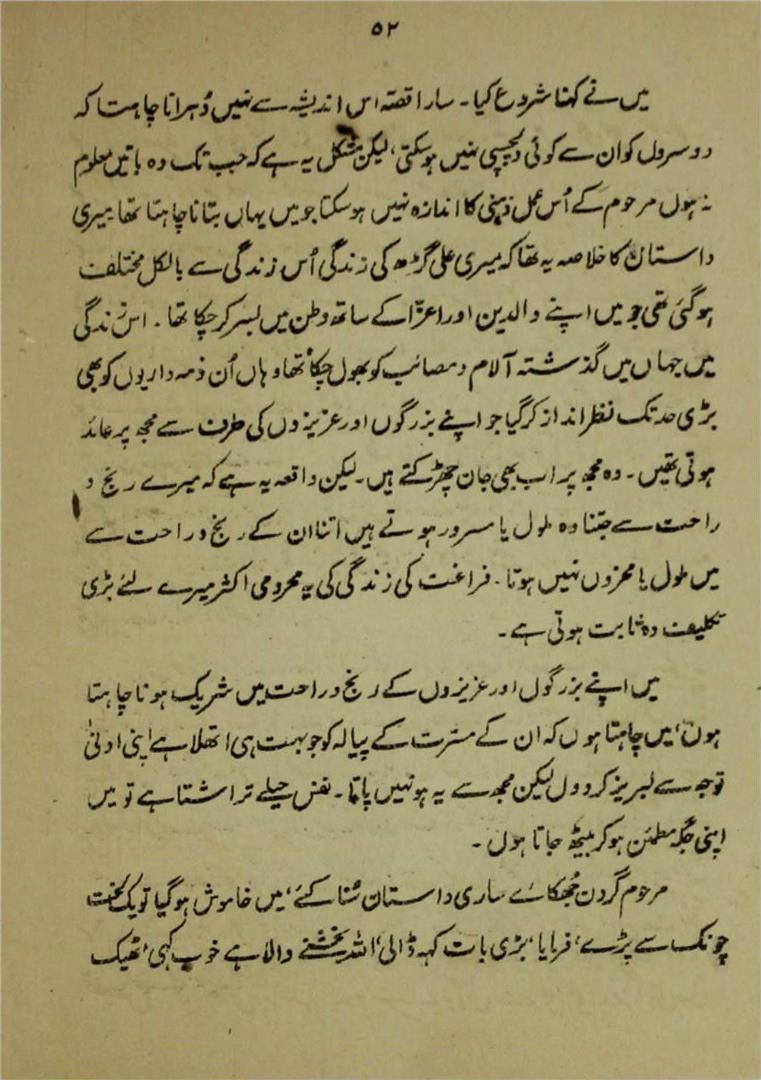 ۵۲
میں نے کہنا شروع کیا۔ سارا قصہ اس اندیشہ سے نہیں دُہرانا چاہتا کہ
دوسروں کو ان سے کوئی دلچسپی نہیں ہوسکتی، لیکن مشکل یہ ہے کہ جب تک وہ باتیں معلوم
نہ ہوں مرحوم کے اُس عمل ذہنی کا اندازہ نہیں ہوسکتا جو میں یہاں بتانا چاہتا تھا میری
داستان کا خلاصہ یہ تھا کہ میری علی گڑھ کی زندگی اُس زندگی سے بالکل مختلف
ہوگئی تھی جو میں اپنے والدین اور اعزّا کے ساتھ وطن میں بسر کر چکا تھا۔ اس زندگی
میں جہاں میں گذشتہ آلام و مصائب کو بھول چکا تھا وہاں اُن ذمہ داریوں کو بھی
بڑی حد تک نظر انداز کر گیا جو اپنے بزرگوں اور عزیزوں کی طرف سے مجھ پر عائد
ہوتی تھیں۔ وہ مجھ پر اب بھی جان چھڑکتے ہیں۔ لیکن واقعہ یہ ہے کہ میرے رنج و
راحت سے جتنا وہ ملول یا مسرور ہوتے ہیں اتنا ان کے رنج و راحت سے
میں ملول یا محزوں نہیں ہوتا۔ فراغت کی زندگی کی یہ محرومی اکثر میرے لئے بڑی
تکلیف دہ ثابت ہوتی ہے۔
میں اپنے بزرگوں اور عزیزوں کے رنج و راحت میں شریک ہونا چاہتا
ہوں، میں چاہتا ہوں کہ ان کے مسرّت کے پیالہ کو جو بہت ہی اتھلا ہے اپنی ادنیٰ
توجہ سے لبریز کردوں لیکن مجھ سے یہ ہو نہیں پاتا۔ نفس حیلے تراشتا ہے تو میں
اپنی جگہ مطمئن ہو کر بیٹھ جاتا ہوں۔
مرحوم گردن جُھکائے ساری داستان سُنا کئے، میں خاموش ہوگیا تو یک لخت
چونک سے پڑے، فرمایا، بڑی بات کہہ ڈالی، اللہ بخشنے والا ہے خوب کہی، ٹھیک